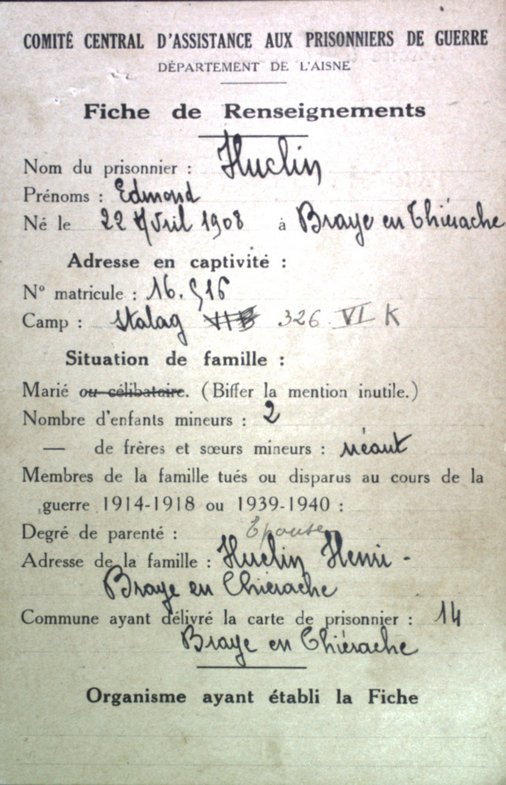 COMITÉ CENTRAL D'ASSISTANCE AUX PRISONNIERS DE GUERRE
DÉPARTEMENT DE L'AISNE
Fiche de Renseignements
Nom du prisonnier : Huclin
Prénoms : Edmond
Né le 22 Avril 1908 à Braye en Thiérache
Adresse en captivité :
N° matricule : 16.516
Camp : Stalag VI B 326 VI K
Situation de famille :
Marié ou célibataire. (Biffer la mention inutile.)
Nombre d'enfants mineurs : 2
— de frères et sœurs mineurs : néant
Membres de la famille tués ou disparus au cours de la
guerre 1914-1918 ou 1939-1940 :
Degré de parenté : Epouse
Adresse de la famille : Huclin Henri -
Braye en Thiérache
Commune ayant délivré la carte de prisonnier : 14
Braye en Thiérache
Organisme ayant établi la Fiche